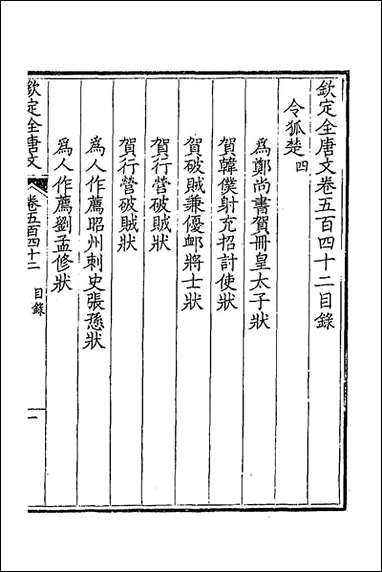 欽定全唐文卷五百四十二目錄
令狐楚四
為鄭尚書賀冊皇太子狀
賀韓僕射充招討使狀
賀破賊兼優䘏將士狀
賀行營破賊狀
賀行營破賊狀
為人作薦昭州刺史張愻狀
為人作薦劉孟修狀
欽定全唐文 卷五百四十二 目錄 一